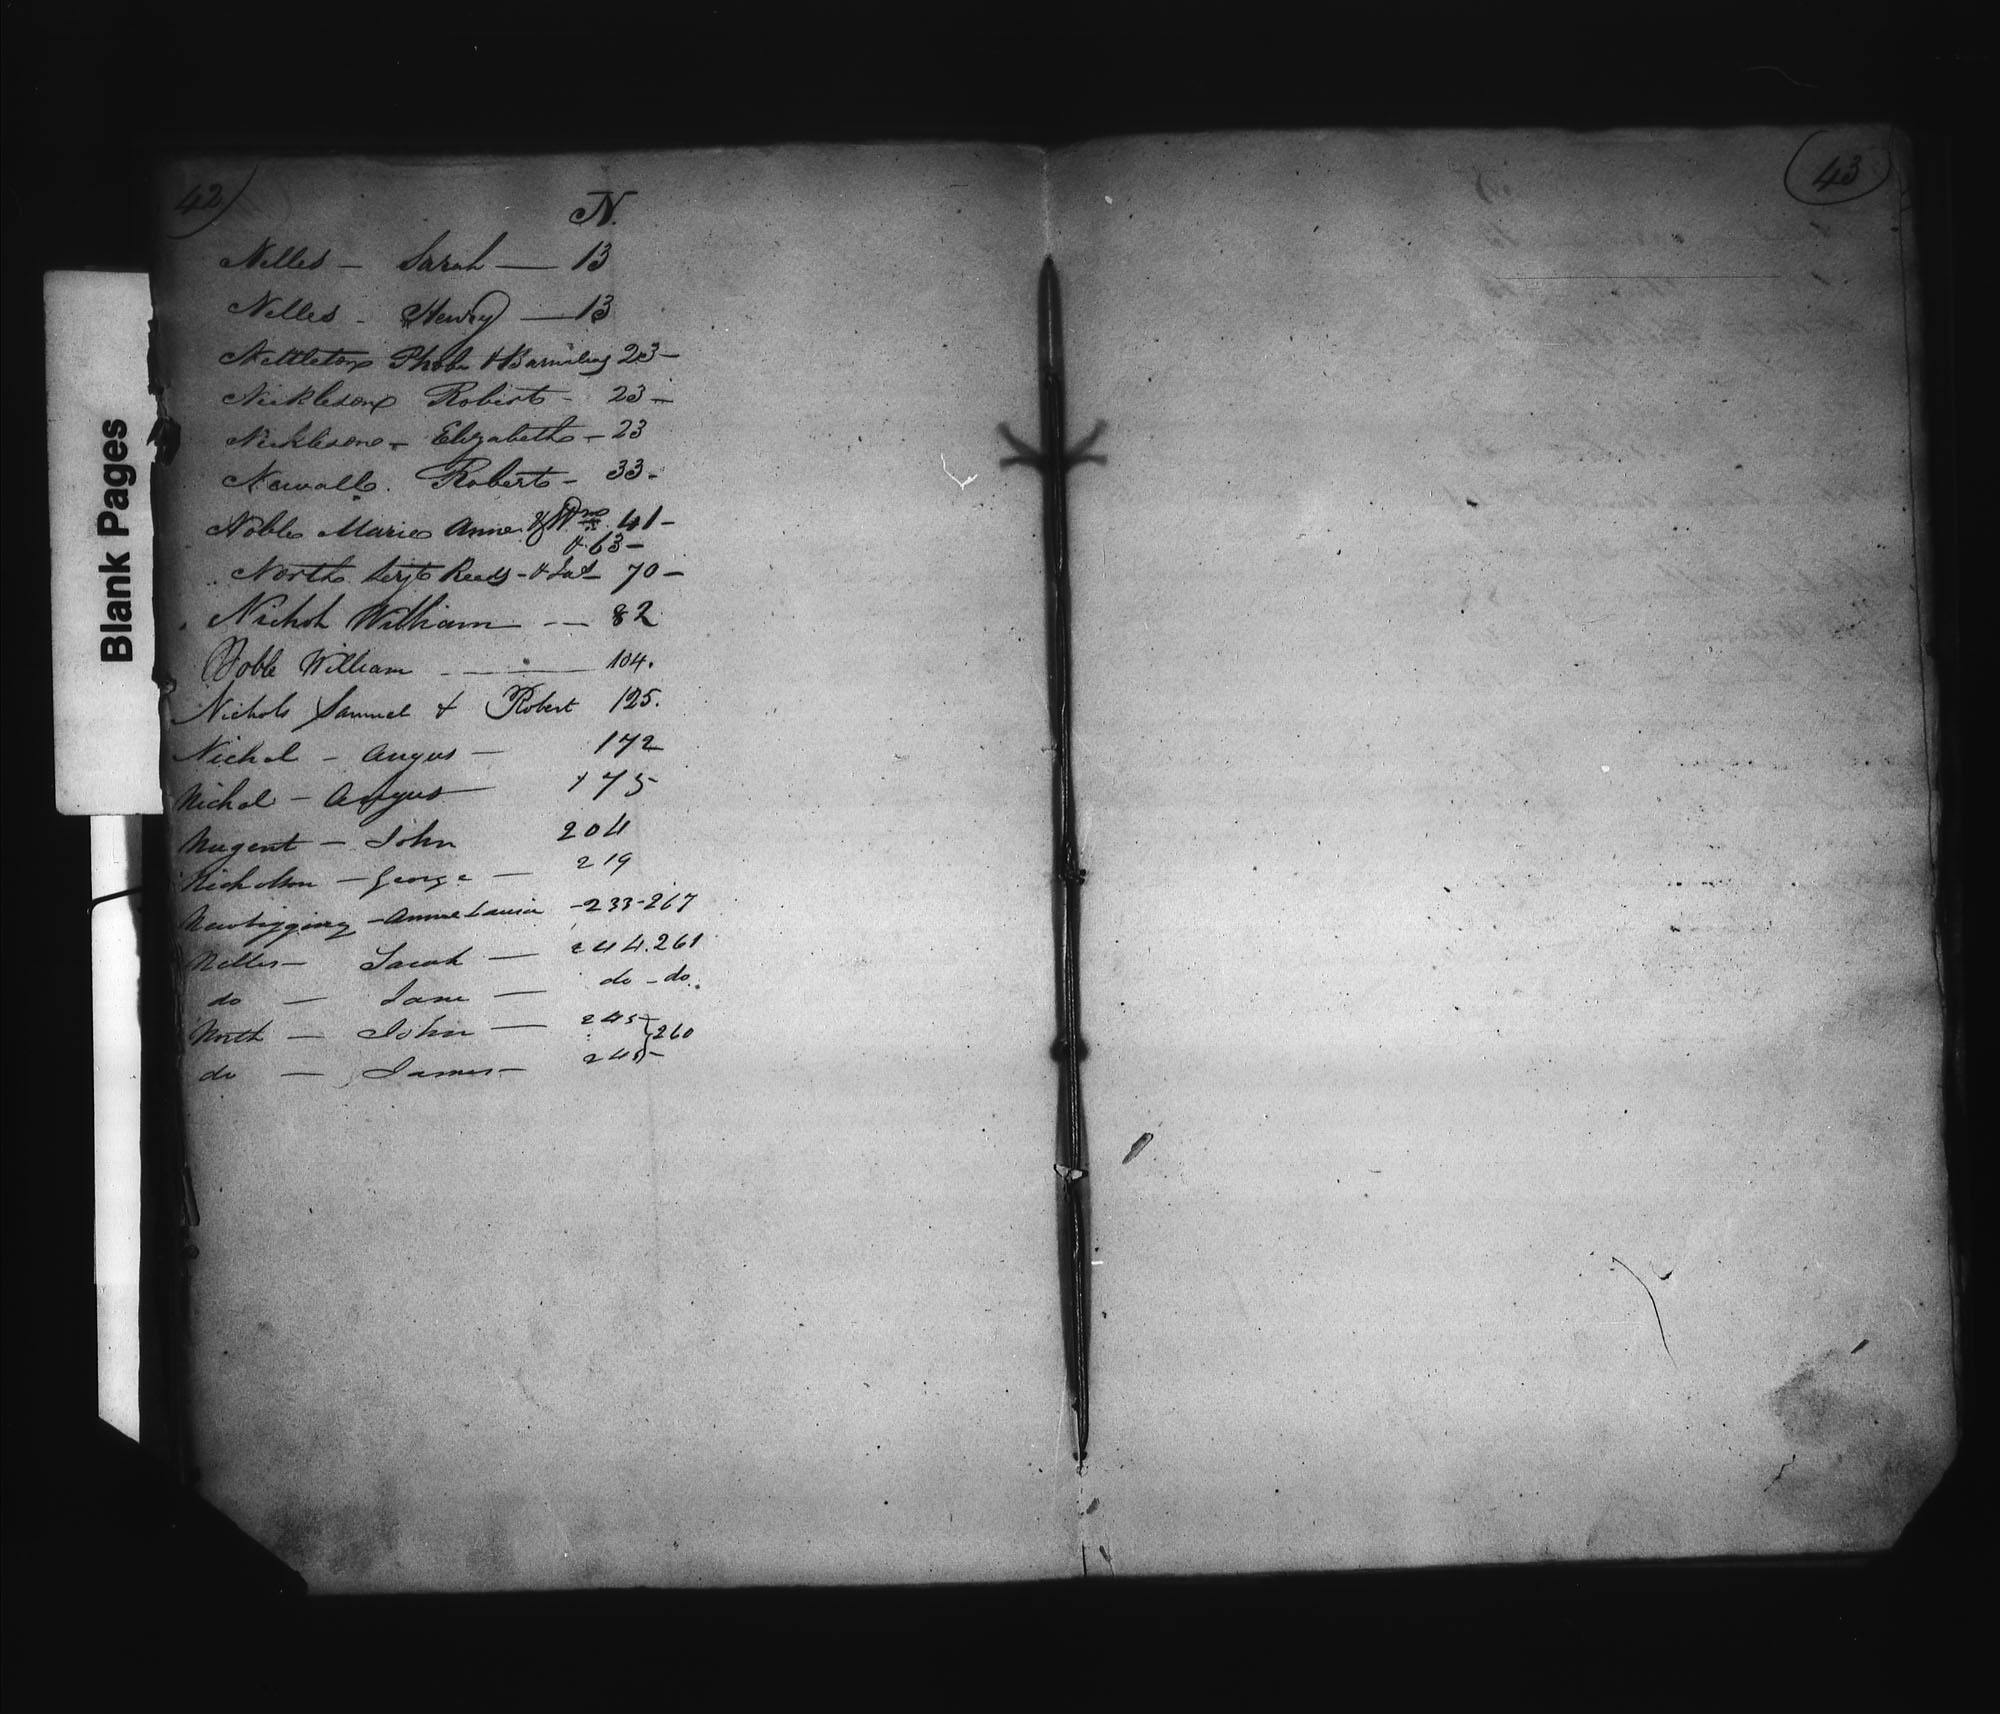 42
N.
Nelles - Sarah - 13
Nelles - Henry - 13
Nettleton Phobe & Barnibus 23 -
Nickleson Robert - 23 -
Nickleson - Elizabeth - 23
Newall. Robert - 33 -
Noble Marie Anne & Wm. 41 -
& 63 -
North. Serjt - & 70 -
Nichol William - - 82
Noble William - 104.
Nichols Samuel & Robert 125.
Nichol - Angus - 172
Nichol - Angus 175
Nugent - John 204
Nicholson - George - 219
Newbigging - Anne Louisa - 233-267
Nelles - Sarah - 244.261
do - Jane - do - do.
North - John - 245 } 260
do - James - 245 -
43
Blank Pages